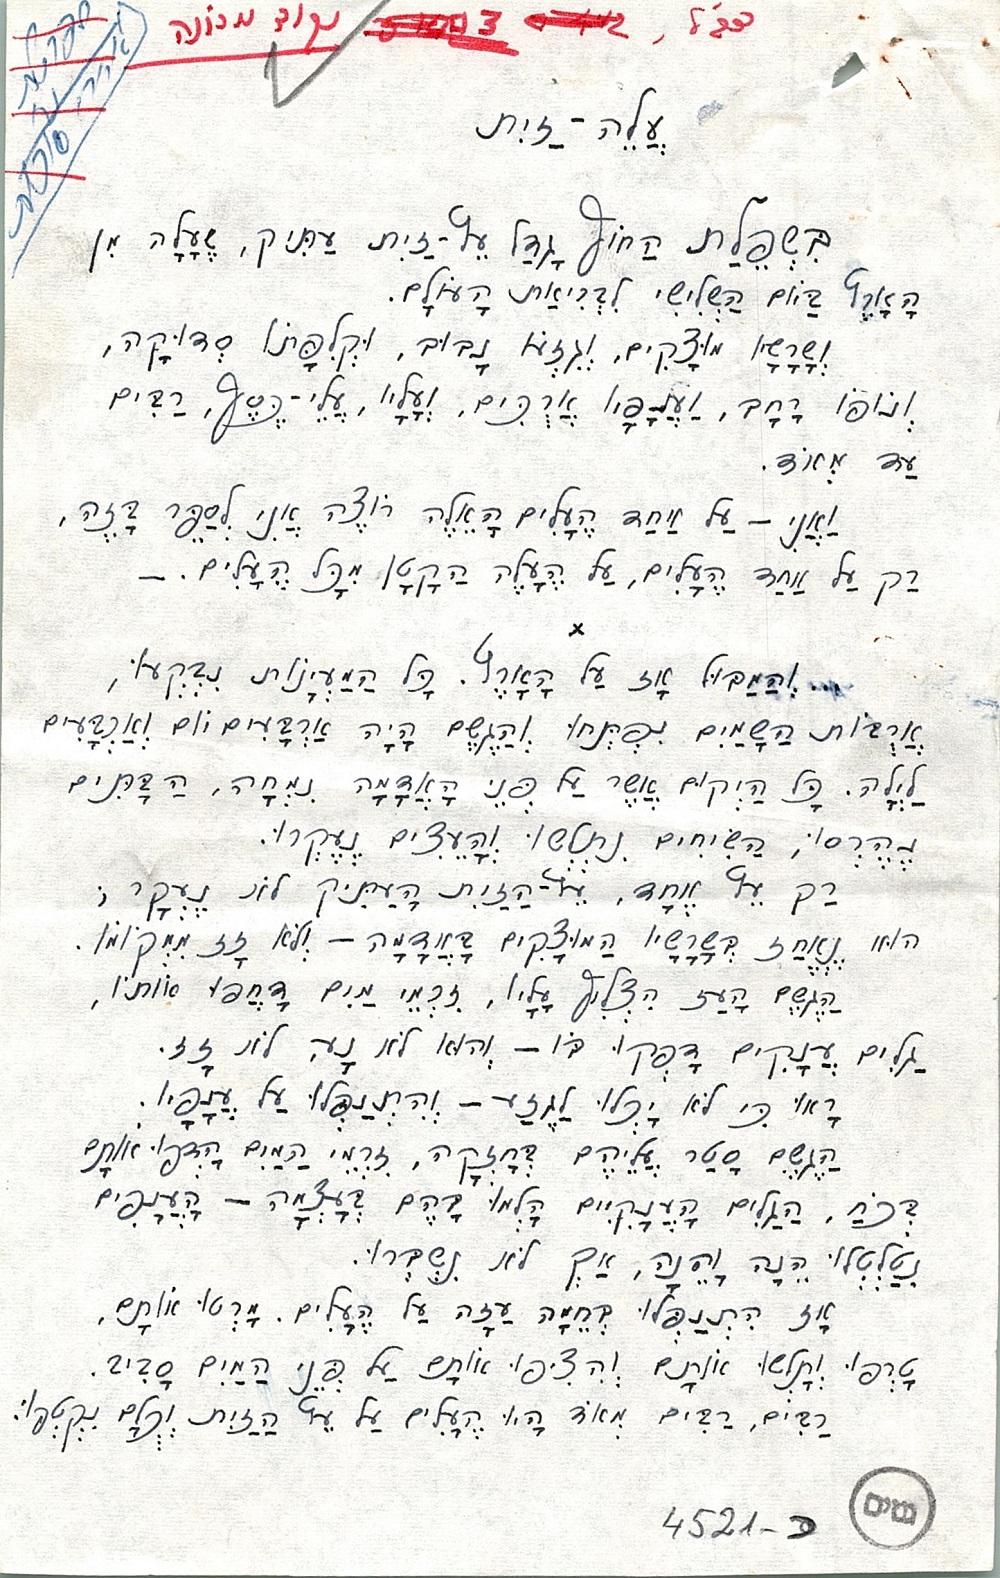 כנ"ל, נקוד מכונה
עֲלֵה-זַיִת
בִּשְׁפֵלַת הַחוֹף גָּדַל עֵץ-זַיִת עַתִּיק, שֶׁעָלָה מִן
הָאָרֶץ בַּיּוֹם הַשְּׁלִישִׁי לִבְרִיאַת הָעוֹלָם.
וְשָׁרָשָׁיו מוּצָקִים, וְגִזְעוֹ נָבוּב, וּקְלִפָּתוֹ סְדוּקָה,
וְנוֹפוֹ רָחָב, וַעֲנָפָיו אֲרֻכִּים, וְעָלָיו, עֲלֵי-כֶּסֶף, רַבִּים
עַד מְאוֹד.
וַאֲנִי – עַל אַחַד הֶעָלִים הָאֵלֶּה רוֹצֶה אֲנִי לְסַפֵּר בָּזֶה,
רַק עַל אַחַד הֶעָלִים, עַל הֶעָלֶה הַקָּטָן מִכָּל הֶעָלִים. –
x
...וְהַמַּבּוּל אָז עַל הָאָרֶץ. כָּל הַמַּעְיָנוֹת נִבְקְעוּ,
אֲרֻבּוֹת הַשָּׁמַיִם נִפְתְּחוּ וְהַגֶּשֶׁם הָיָה אַרְבָּעִים יוֹם וְאַרְבָּעִים
לַיְלָה. כָּל הַיְקוּם אֲשֶׁר עַל פְּנֵי הָאֲדָמָה נִמְחָה, הַבָּתִּים
נֶהֶרְסוּ, הַשִּׂיחִים נִתְלְשׁוּ וְהָעֵצִים נֶעֶקְרוּ.
רַק עֵץ אֶחָד, עֵץ-הַזַּיִת הָעַתִּיק לֹא נֶעֱקָר;
הוּא נֶאֱחַז בְּשָׁרָשָׁיו הַמּוּצָקִים בָּאֲדָמָה – וְלֹא זָז מִמְּקוֹמוֹ.
הַגֶּשֶׁם הָעַז הִצְלִיף עָלָיו, זִרְמֵי מַיִם דָּחֲפוּ אוֹתוֹ,
גַּלִּים עֲנָקִים דָּפְקוּ בּוֹ – וְהוּא לֹא נָע, לֹא זָז.
רָאוּ כִּי לֹא יָכְלוּ לַגֶּזַע – וְהִתְנַפְּלוּ עַל עֲנָפָיו.
הַגֶּשֶׁם סָטַר עֲלֵיהֶם בְּחָזְקָה, זִרְמֵי הַמַּיִם הָדְפוּ אוֹתָם
בְּכֹחַ, הַגַּלִּים הָעֲנָקִיִּים הָלְמוּ בָּהֶם בְּעָצְמָה – הָעֲנָפִים
נִטַּלְטְלוּ הֵנָּה וָהֵנָּה, אַךְ לֹא נִשְׁבְּרוּ.
אָז הִתְנַפְּלוּ בְּחֵמָה עַזָּה עַל הֶעָלִים. מָרְטוּ אוֹתָם,
טָרְפוּ וְתָלְשׁוּ אוֹתָם וְהֵצִיפוּ אוֹתָם עַל פְּנֵי הַמַּיִם סָבִיב.
רַבִּים, רַבִּים מְאוֹד הָיוּ הֶעָלִים עַל עֵץ הַזַּיִת וְכֻלָּם נִקְטְפוּ.
4521-כ